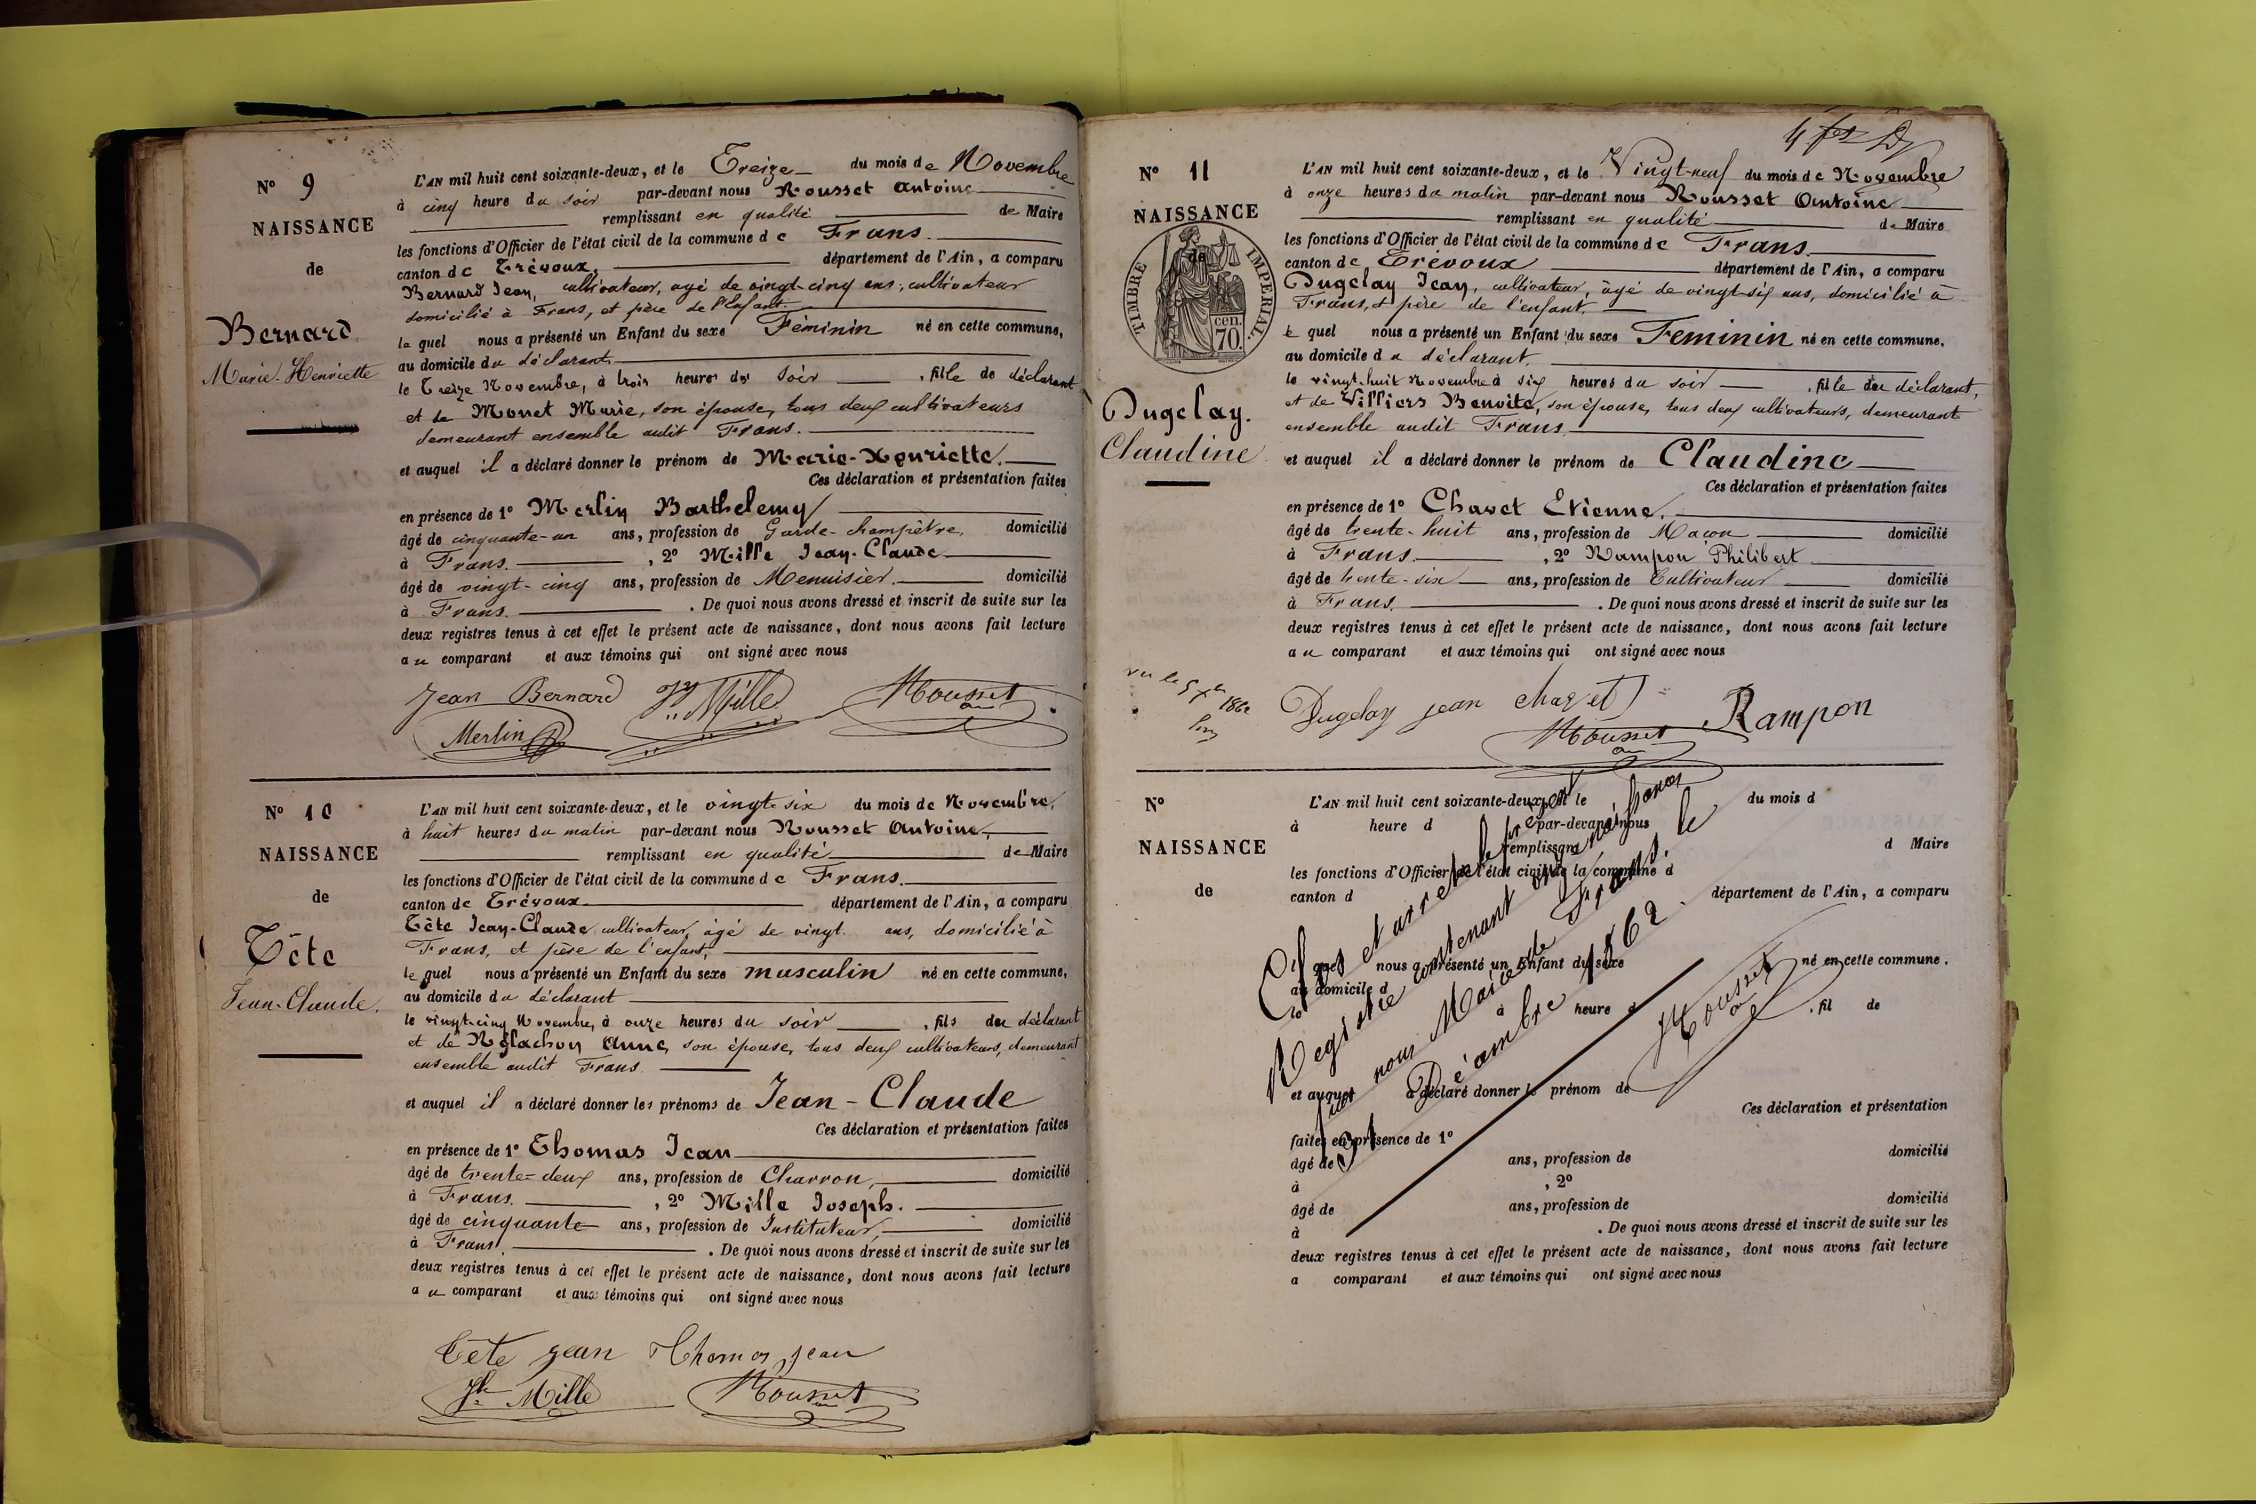 N° 9
NAISSANCE
de
Bernard
Marie-Henriette
L'AN mil huit cent soixante-deux, et le Treize du mois de Novembre
à cinq heure du soir par-devant nous Rousset Antoine
remplissant en qualité de Maire
les fonctions d'Officier de l'état civil de la commune de Frans
canton de Trévoux, département de l'Ain, a comparu
Bernard Jean, cultivateur, agé de vingt-cinq ans, cultivateur
domicilié à Frans, et père de l'Enfant.
le quel nous a présenté un Enfant du sexe Féminin né en cette commune,
au domicile du déclarant
le Treize Novembre, à trois heures du soir , fille de déclarant
et de Monet Marie, son épouse, tous deux cultivateurs
demeurant ensemble audit Frans.
et auquel il a déclaré donner le prénom de Marie-Henriette.
Ces déclaration et présentation faites
en présence de 1° Merlin Barthelemy
âgé de cinquante-un ans, profession de Garde-champêtre, domicilié
à Frans. , 2° Mille Jean-Claude
âgé de vingt-cinq ans, profession de Menuisier. domicilié
à Frans. . De quoi nous avons dressé et inscrit de suite sur les
deux registres tenus à cet effet le présent acte de naissance, dont nous avons fait lecture
au comparant et aux témoins qui ont signé avec nous
Jean Bernard Mille Rousset
Merlin
N° 10
NAISSANCE
de
Tête
Jean-Claude.
L'AN mil huit cent soixante-deux, et le vingt-six du mois de Novembre,
à huit heures du matin par-devant nous Rousset Antoine,
remplissant en qualité de Maire
les fonctions d'Officier de l'état civil de la commune de Frans.
canton de Trévoux département de l'Ain, a comparu
Tête Jean-Claude cultivateur, âgé de vingt ans, domicilié à
Frans, et père de l'enfant,
le quel nous a présenté un Enfant du sexe masculin né en cette commune,
au domicile du déclarant
le vingt-cinq Novembre, à onze heures du soir , fils du déclarant
et de Anne, son épouse, tous deux cultivateurs, demeurant
ensemble audit Frans.
et auquel il a déclaré donner les prénoms de Jean-Claude
Ces déclaration et présentation faites
en présence de 1° Thomas Jean
âgé de trente-deux ans, profession de Charron, domicilié
à Frans. , 2° Mille Joseph.
âgé de cinquante ans, profession de Instituteur, domicilié
à Frans. . De quoi nous avons dressé et inscrit de suite sur les
deux registres tenus à cet effet le présent acte de naissance, dont nous avons fait lecture
au comparant et aux témoins qui ont signé avec nous
Tête jean Thomas jean
Mille Rousset
N° 11
NAISSANCE
de
TIMBRE IMPERIAL.
70. cen.
Dugelay.
Claudine
L'AN mil huit cent soixante-deux, et le Vingt-neuf du mois de Novembre
à onze heures du matin par-devant nous Rousset Antoine
remplissant en qualité de Maire
les fonctions d'Officier de l'état civil de la commune de Frans
canton de Trévoux département de l'Ain, a comparu
Dugelay Jean, cultivateur, âgé de vingt-six ans, domicilié à
Frans, et père de l'enfant.
le quel nous a présenté un Enfant du sexe Feminin né en cette commune.
au domicile du déclarant.
le vingt-huit Novembre à six heures du soir , fille du déclarant,
et de Villiers Benoite, son épouse, tous deux cultivateurs, demeurant
ensemble audit Frans
et auquel il a déclaré donner le prénom de Claudine
Ces déclaration et présentation faites
en présence de 1° Chavet Etienne.
âgé de trente-huit ans, profession de Maçon domicilié
à Frans. , 2° Rampon Philibert
âgé de trente-six ans, profession de Cultivateur domicilié
à Frans. . De quoi nous avons dressé et inscrit de suite sur les
deux registres tenus à cet effet le présent acte de naissance, dont nous avons fait lecture
au comparant et aux témoins qui ont signé avec nous
vu le 1862
Dugelay jean chavet
Rousset Rampon
N°
NAISSANCE
de
L'AN mil huit cent soixante-deux, et le du mois d
à heure d par-devant nous
remplissant d Maire
les fonctions d'Officier de l'état civil de la commune d
canton d département de l'Ain, a comparu
le quel nous a présenté un Enfant du sexe né en cette commune.
au domicile d
le à heure d , fil de
et auquel a déclaré donner le prénom de
Ces déclaration et présentation
faites en présence de 1°
âgé de ans, profession de domicilié
à , 2°
âgé de ans, profession de domicilié
à . De quoi nous avons dressé et inscrit de suite sur les
deux registres tenus à cet effet le présent acte de naissance, dont nous avons fait lecture
a comparant et aux témoins qui ont signé avec nous
Clos et arrêté le présent
Registre contenant onze naissances
par nous Maire de Frans, le
31 Décembre 1862.
Rousset